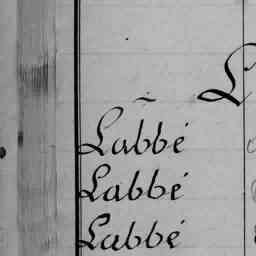 L
Labbé
Labbé
Labbé